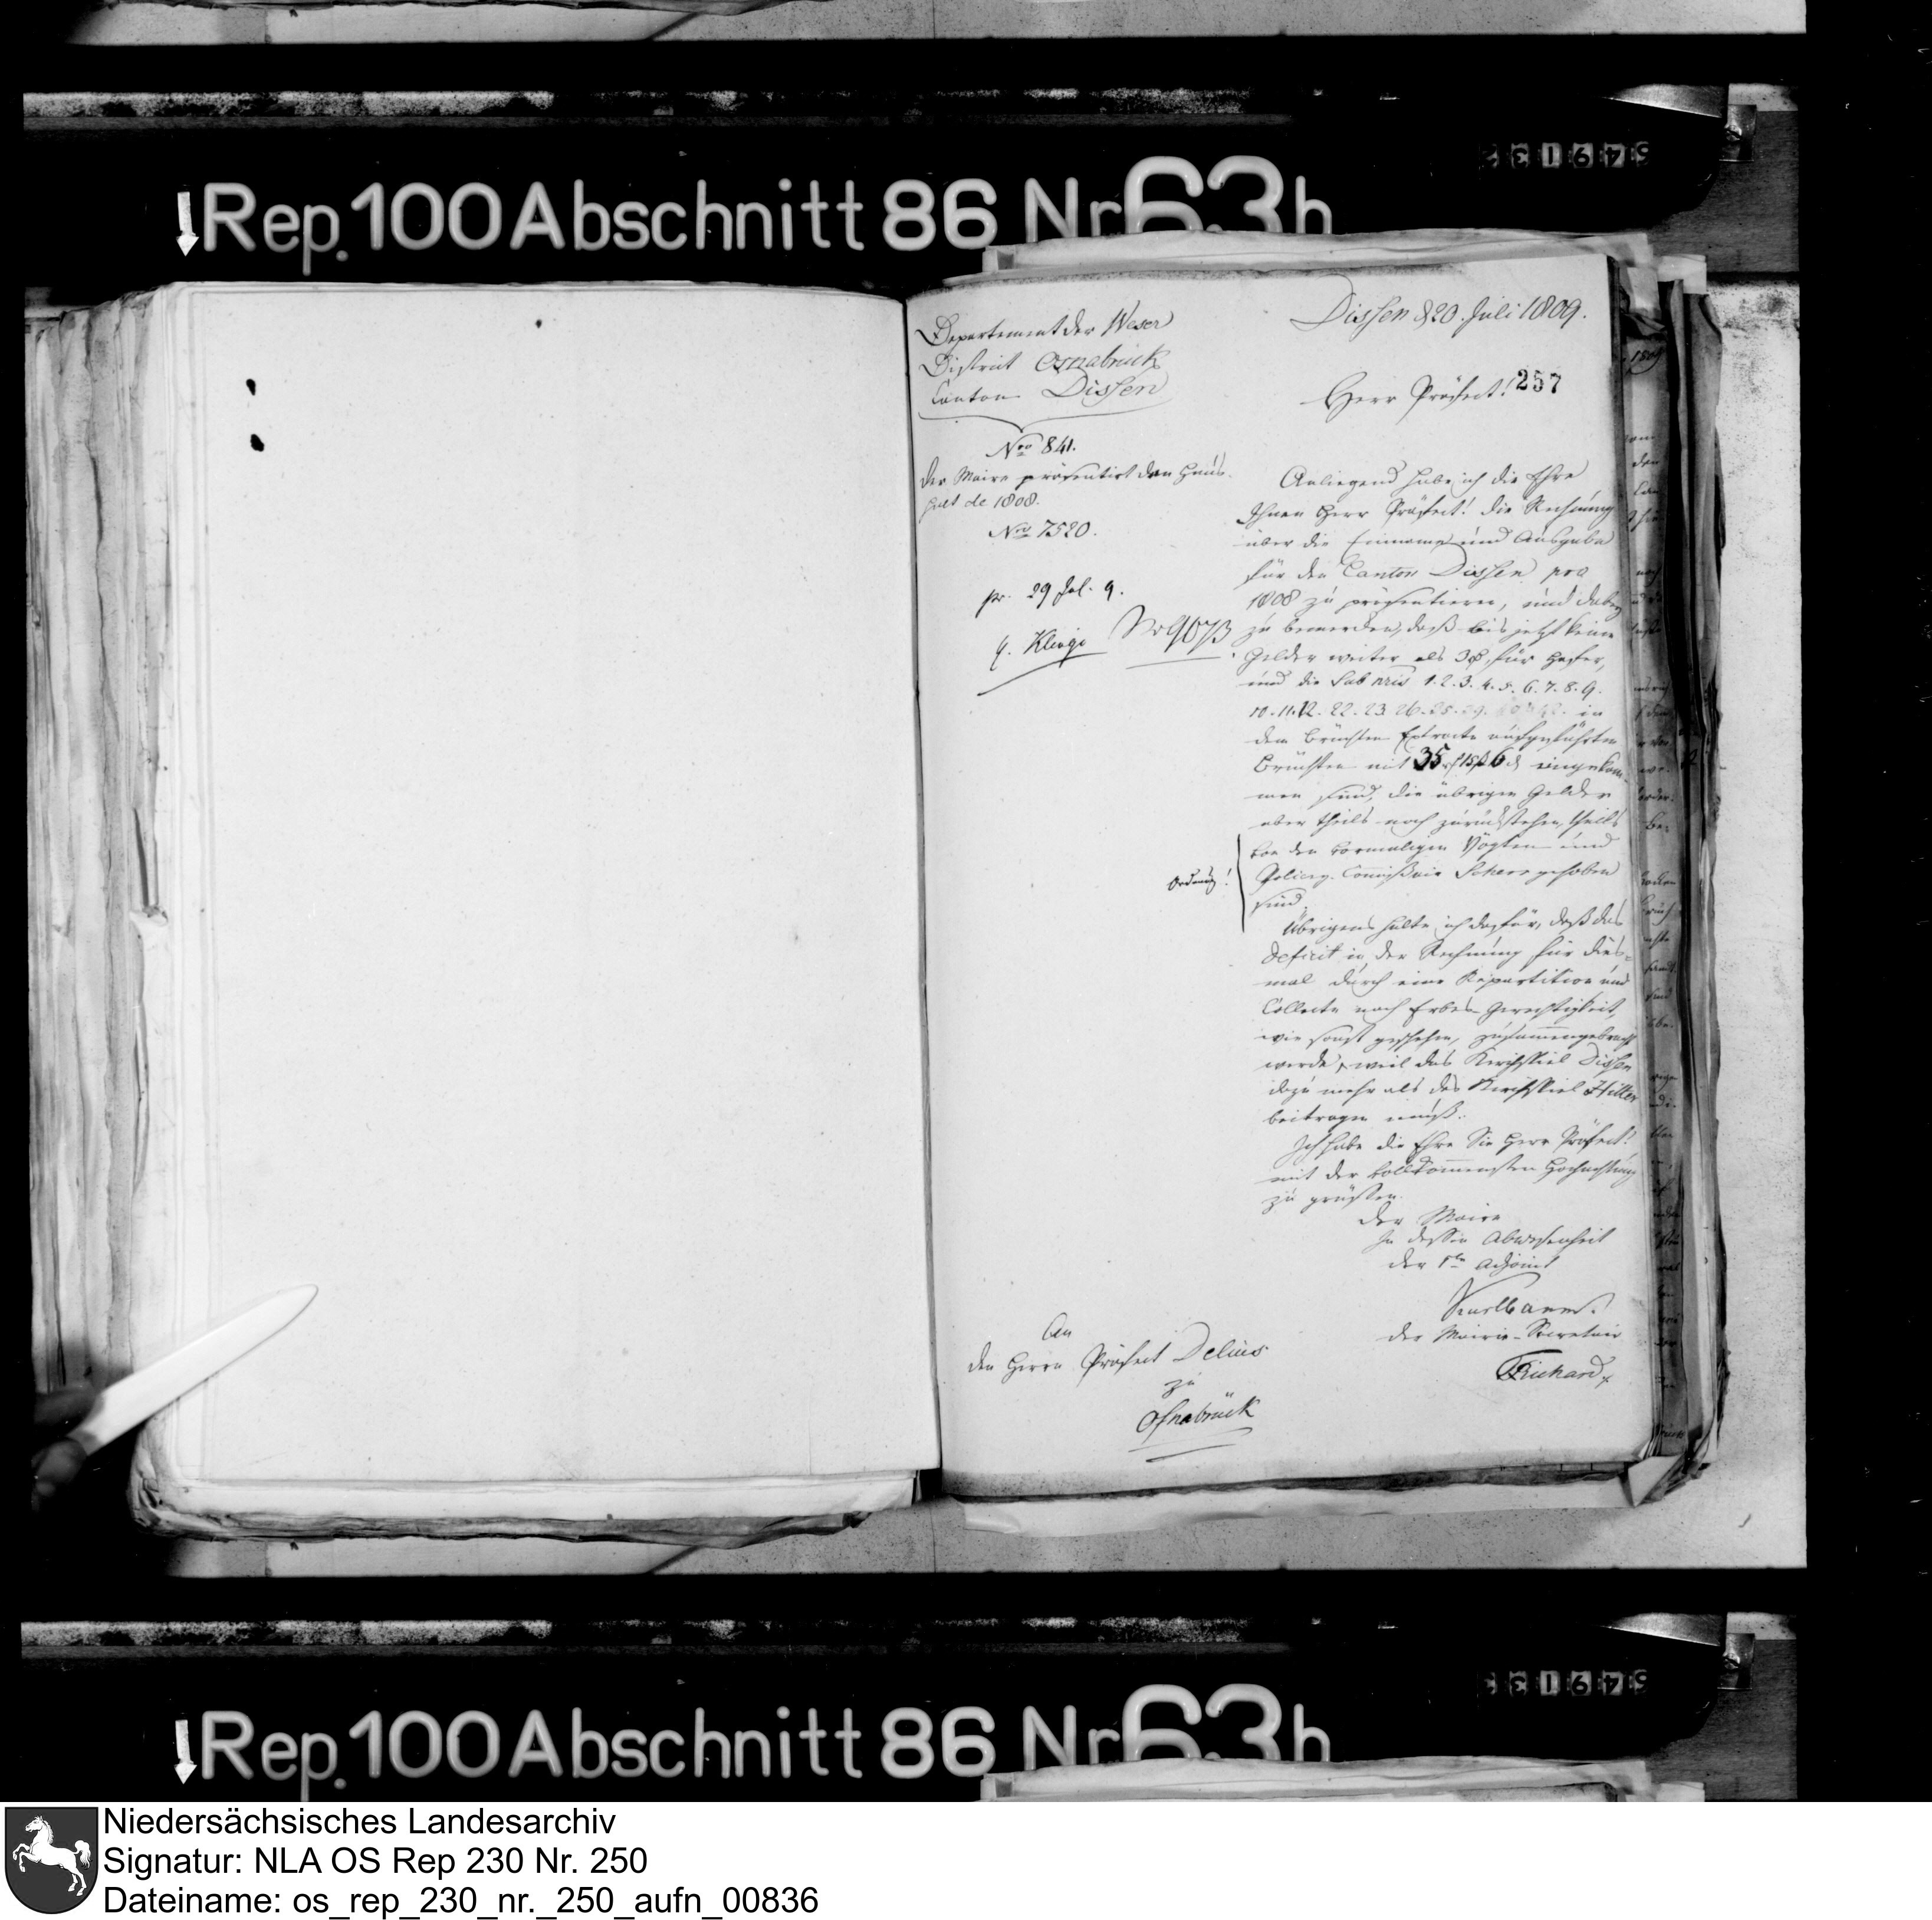 Rep. 100 Abschnitt 86 Nr 63 h
Departement der Weser
District Osnabrück
Canton Dissen
Nro 841.
Der Maire präsentirt den Haus-
halt de 1808.
Nro 7520.
pr. 29 Jul. 9.
Dissen d 20. Juli 1809.
Herr Präfect!
257
Anliegend habe ich die Ehre
Ihnen Herr Präfect! die Rechnung
über die Einname und Ausgabe
für den Canton Dissen pro
1808 zu präsentieren, und dabey
zu bemerken, daß bis jetzt keine
Gelder weiter als für
und die sub nris 1. 2. 3. 4. 5. 6. 7. 8. 9.
10. 11. 12. 22. 23. 26. in
den Brüchten Extracte aufgeführten
Brüchten mit 35 15 6 eingekom-
men sind, die übrigen Gelder
aber theils noch zurückstehen, theils
von den vormaligen Vögten und
Policey-Commissair gehoben
sind.
Übrigens halte ich dafür, daß das
Deficit in der Rechnung für dies-
mal durch eine Repartition und
Collecte nach Erbes-Gerechtigkeit,
wie sonst geschehen, zusammengebracht
werde, weil das Kirchspiel Dissen
dazu mehr als das Kirchspiel Hilter
beitragen muß.
Ich habe die Ehre Sie Herr Präfect!
mit der vollkommensten Hochachtung
zu grüßen.
Der Maire
In dessen Abwesenheit
der 1te Adjoint
der Mairie-Secretair
Richard
An
den Herrn Präfect Delius
zu
Osnabrück
Rep. 100 Abschnitt 86 Nr 63 h
Niedersächsisches Landesarchiv
Signatur: NLA OS Rep 230 Nr. 250
Dateiname: os_rep_230_nr._250_aufn_00836